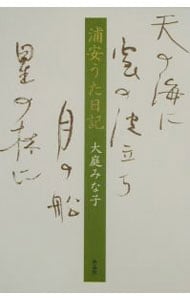 天の海に
雲の波立ち
浦安うた日記
大庭みな子
月の船
星の林に